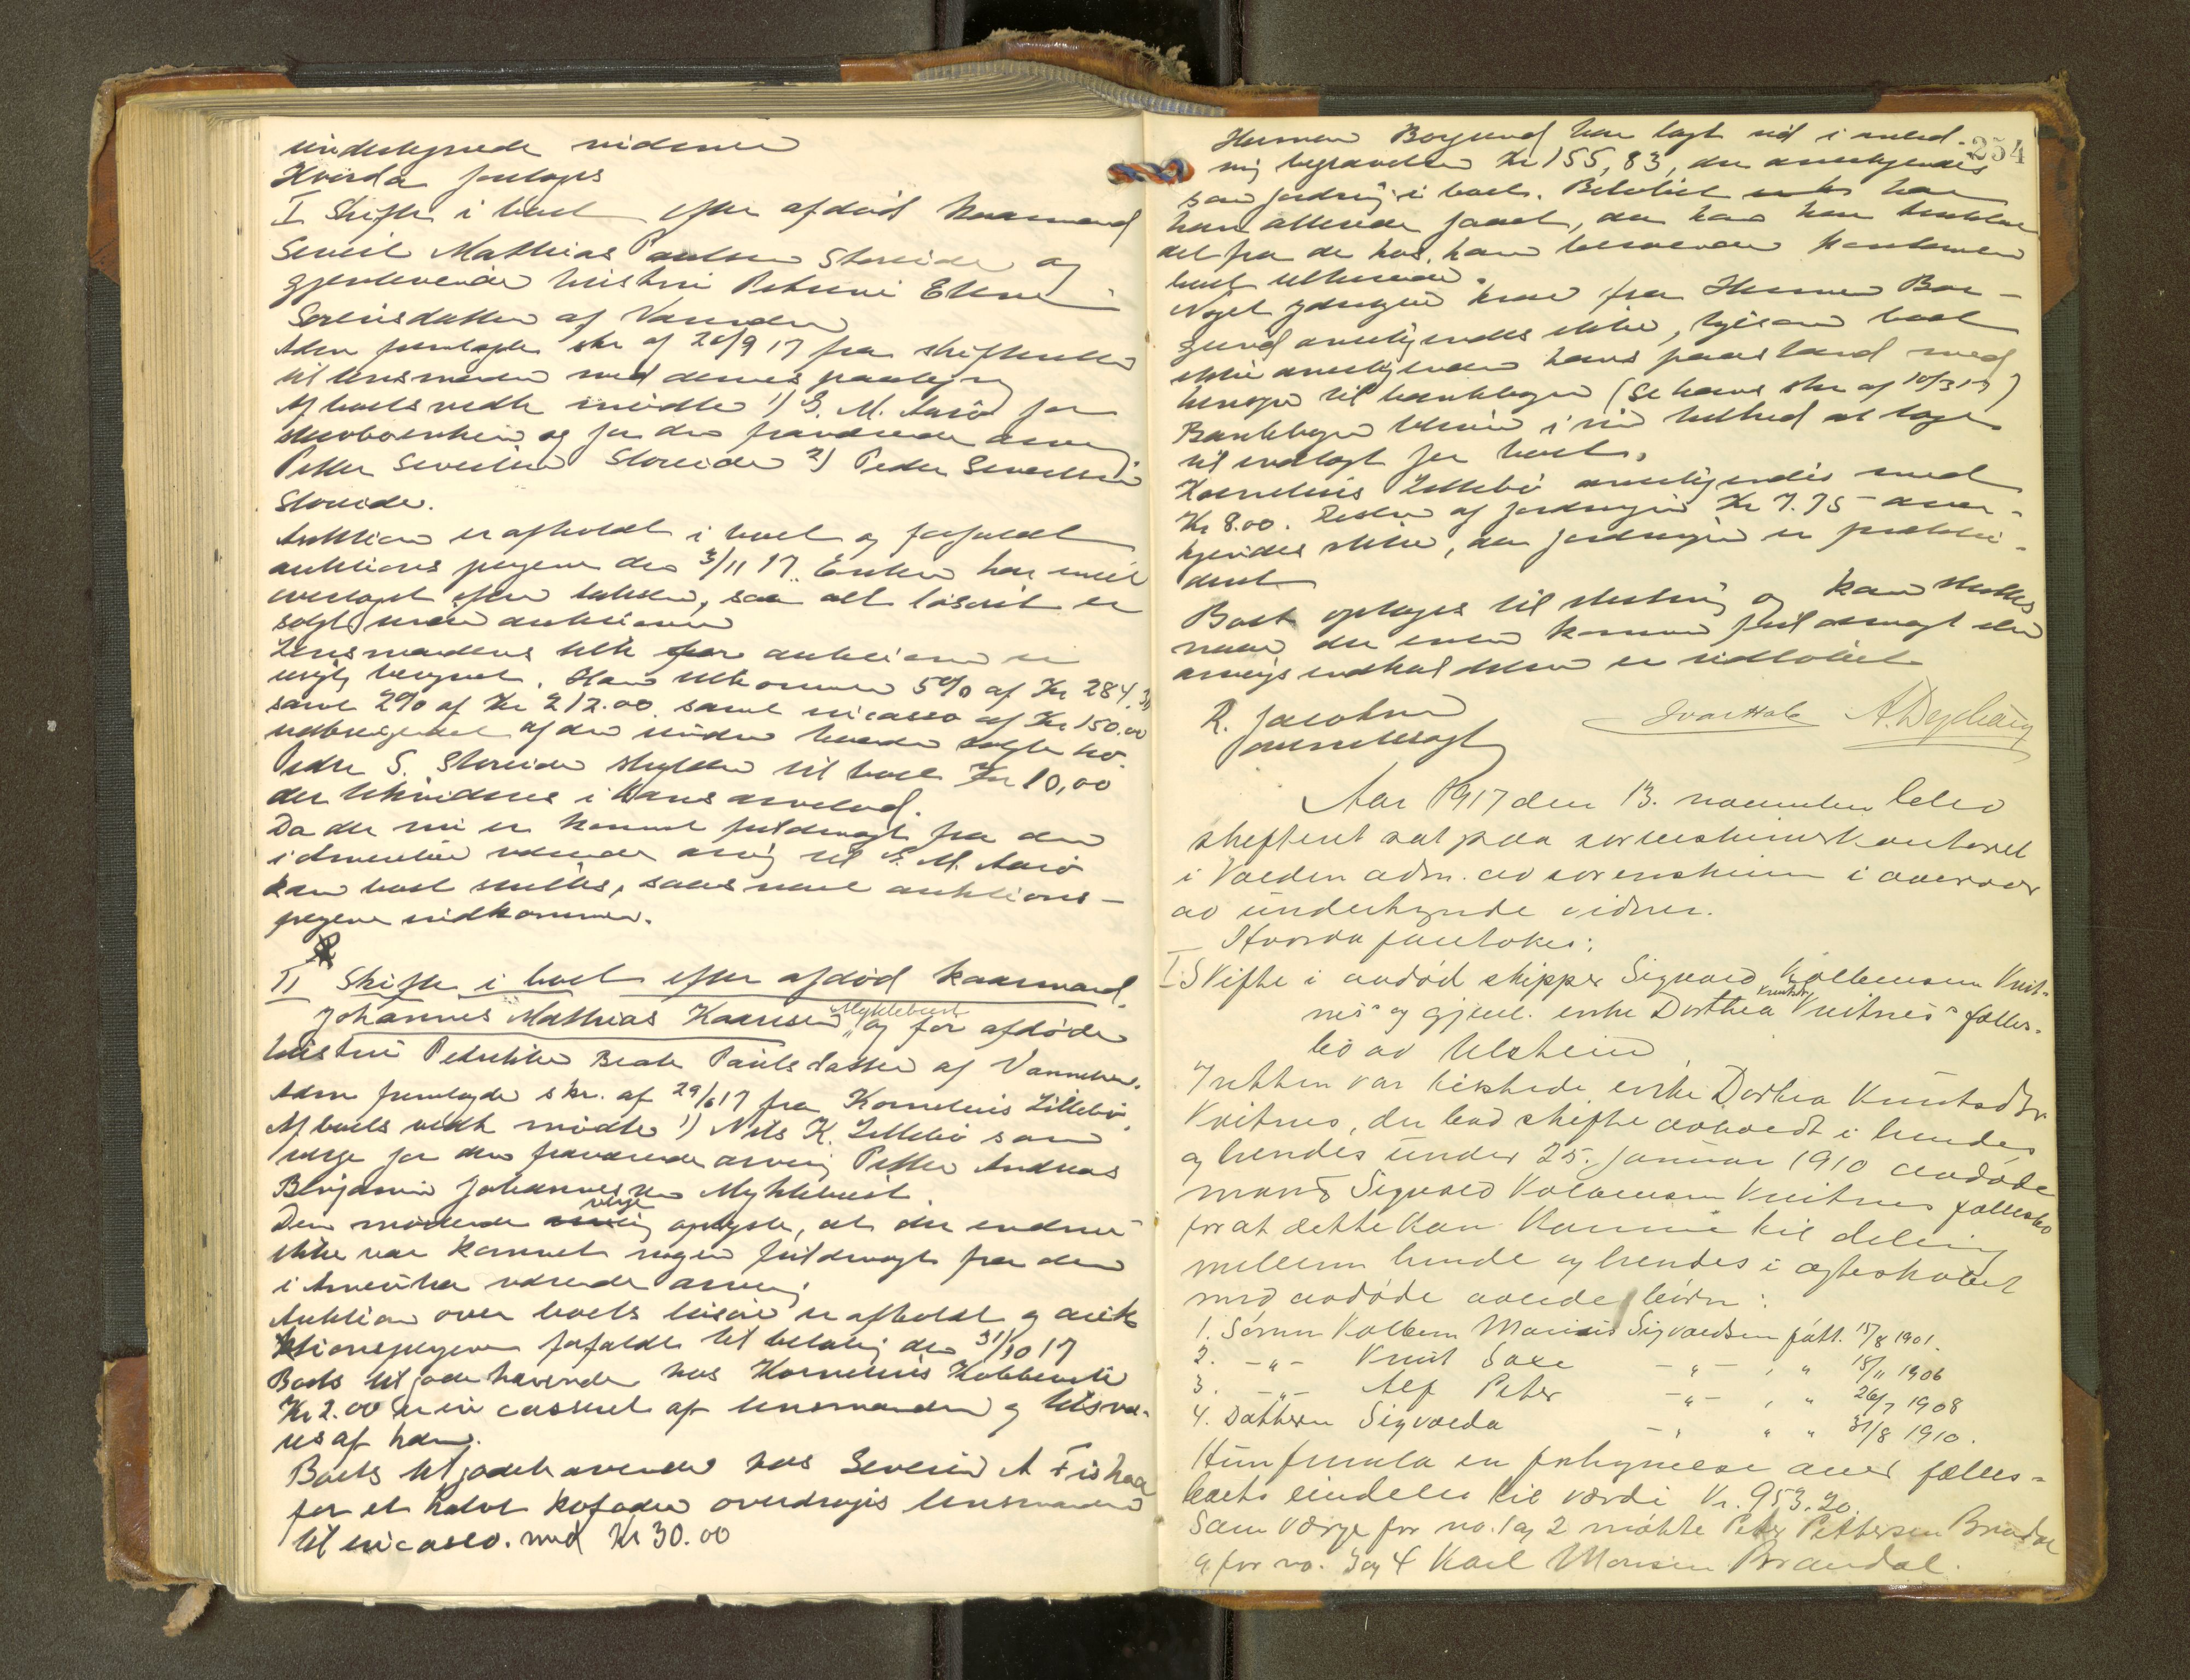 undertegnede vidner
Hvorda foretoges
I Skifte i boet efter afdød kaarmand
Severt Mathias Paulsen Storeide og
gjenlevende hustru Petrine Eline
Sørensdatter af Vanneln
Adm fremlagde skr af 20/9 17 fra skifteretten
til lensmanden med dennes paategning
Af boets vedk mødte 1) S. M. Aasø for
og for den fraværende arving
Petter Severtsen Storeide 2) Peder Severtsen
Storeide.
Auktion er afholdt i boet og forfaldt
auktions pengene den 3/11 17. Enken har intet
overtaget efter taksten, saa alt løsøret er
solgt under auktionen
Lensmandens tilk for auktionen er
urigtig beregnet. Han tilkommer 5% af Kr 284.
samt 2% af Kr 212.00 samt incasso af Kr 150.00
af den under haanden solgte ko.
Peder S. Storeide skylder til boet Kr 10,00
der likvideres i hans arvelod.
Da der nu er kommet fuldmagt fra den
i Amerika værende arving til S. M. Aasø
kan boet sluttes, saasnart auktions-
pengene indkommer.
II Skifte i boet efter afdød kaarmand
Johannes Mathias Knutsen Myklebust og før afdøde
hustru Petrikke Beate Paulsdatter af Vanneln.
Adm fremlagde skr. af 29/6 17 fra Kornelius Lillebø.
Af boets vedk mødte 1) Nils K. Lillebø som
verge for den fraværende arving Petter Andreas
Benjamin Johannessen Myklebust.
Den mødende verge oplyste, at der endnu
ikke var kommet nogen fuldmagt fra den
i Amerika værende arving
Auktion over boets løsøre er afholdt og auk
ktionspengene forfaldt til betaling den 31/10 17
Boets tilgodehavende hos Kornelius
Kr 2.00 er in casseret af lensmanden og tilsva-
res af ham.
Boets tilgodehavende hos Severin A Fiskaa
for et halvt kofoder overdrages lensmanden
til incasso. med Kr 30.00
254
Herman Borgund har lagt ud i anled-
ning begravelsen Kr 155,83, der anerkjendes
som fordring i boet. Beløbet har
han allerede faaet, da han har trukket
det fra de hos ham beroende kontanter
boet tilhørende.
Noget yderligere krav fra Herman Bor-
gund anerkjendes ikke, ligesom boet
ikke anerkjender hans paastand med
hensyn til bankbogen (Se hans skr af 10/3 17)
Bankbogen bliver i sin helhed at tage
til indtægt for boet.
Kornelius Lillebø anerkjendes med
Kr 8.00. Resten af fordringen Kr 7.75 aner-
kjendes ikke, da fordringen er præklu-
deret
Boet optages til slutning og kan sluttes
naar der enten kommer fuldmagt eller
arvingsindkaldelsen er udløbet
R. Jacobsen
Ivar Hole
Aar 1917 den 13. november blev
skifteret sat paa sorenskriverkontoret
i Volden adm. av sorenskriveren i overvær
av undertegnede vidner.
Hvorda foretokes:
I. Skifte i avdød skipper Sigvald Kolbensen Kvit-
nes og gjenl. enke Dorthea Knutsdtr Kvitnes fælles-
bo av Ulstein
I retten var tilstede enke Dorthea Knutsdtr
Kvitnes, der bad skifte avholdt i hendes
og hendes under 25. januar 1910 avdøde
mand Sigvald Kolbensen Kvitnes fællesbo
for at dette kan komme til deling
mellem hende og hendes i ægteskabet
med avdøde avlede børn:
1. Sønnen Kolben Marius Sigvaldsen født. 15/8 1901.
2. -"- Knut Saxe -"- , " 15/11 1906
3. -"- Alf Peter -"- , " 26/7 1908
4. Datteren Sigvalda -"- " " 31/8 1910.
Hun fremla en fortegnelse over fælles-
boets eiendeler til værdi Kr. 953.20.
Som verge for no. 1 og 2 møtte Peter Pettersen Brandal
og for no. 3 og 4 Karl Monsen Brandal.